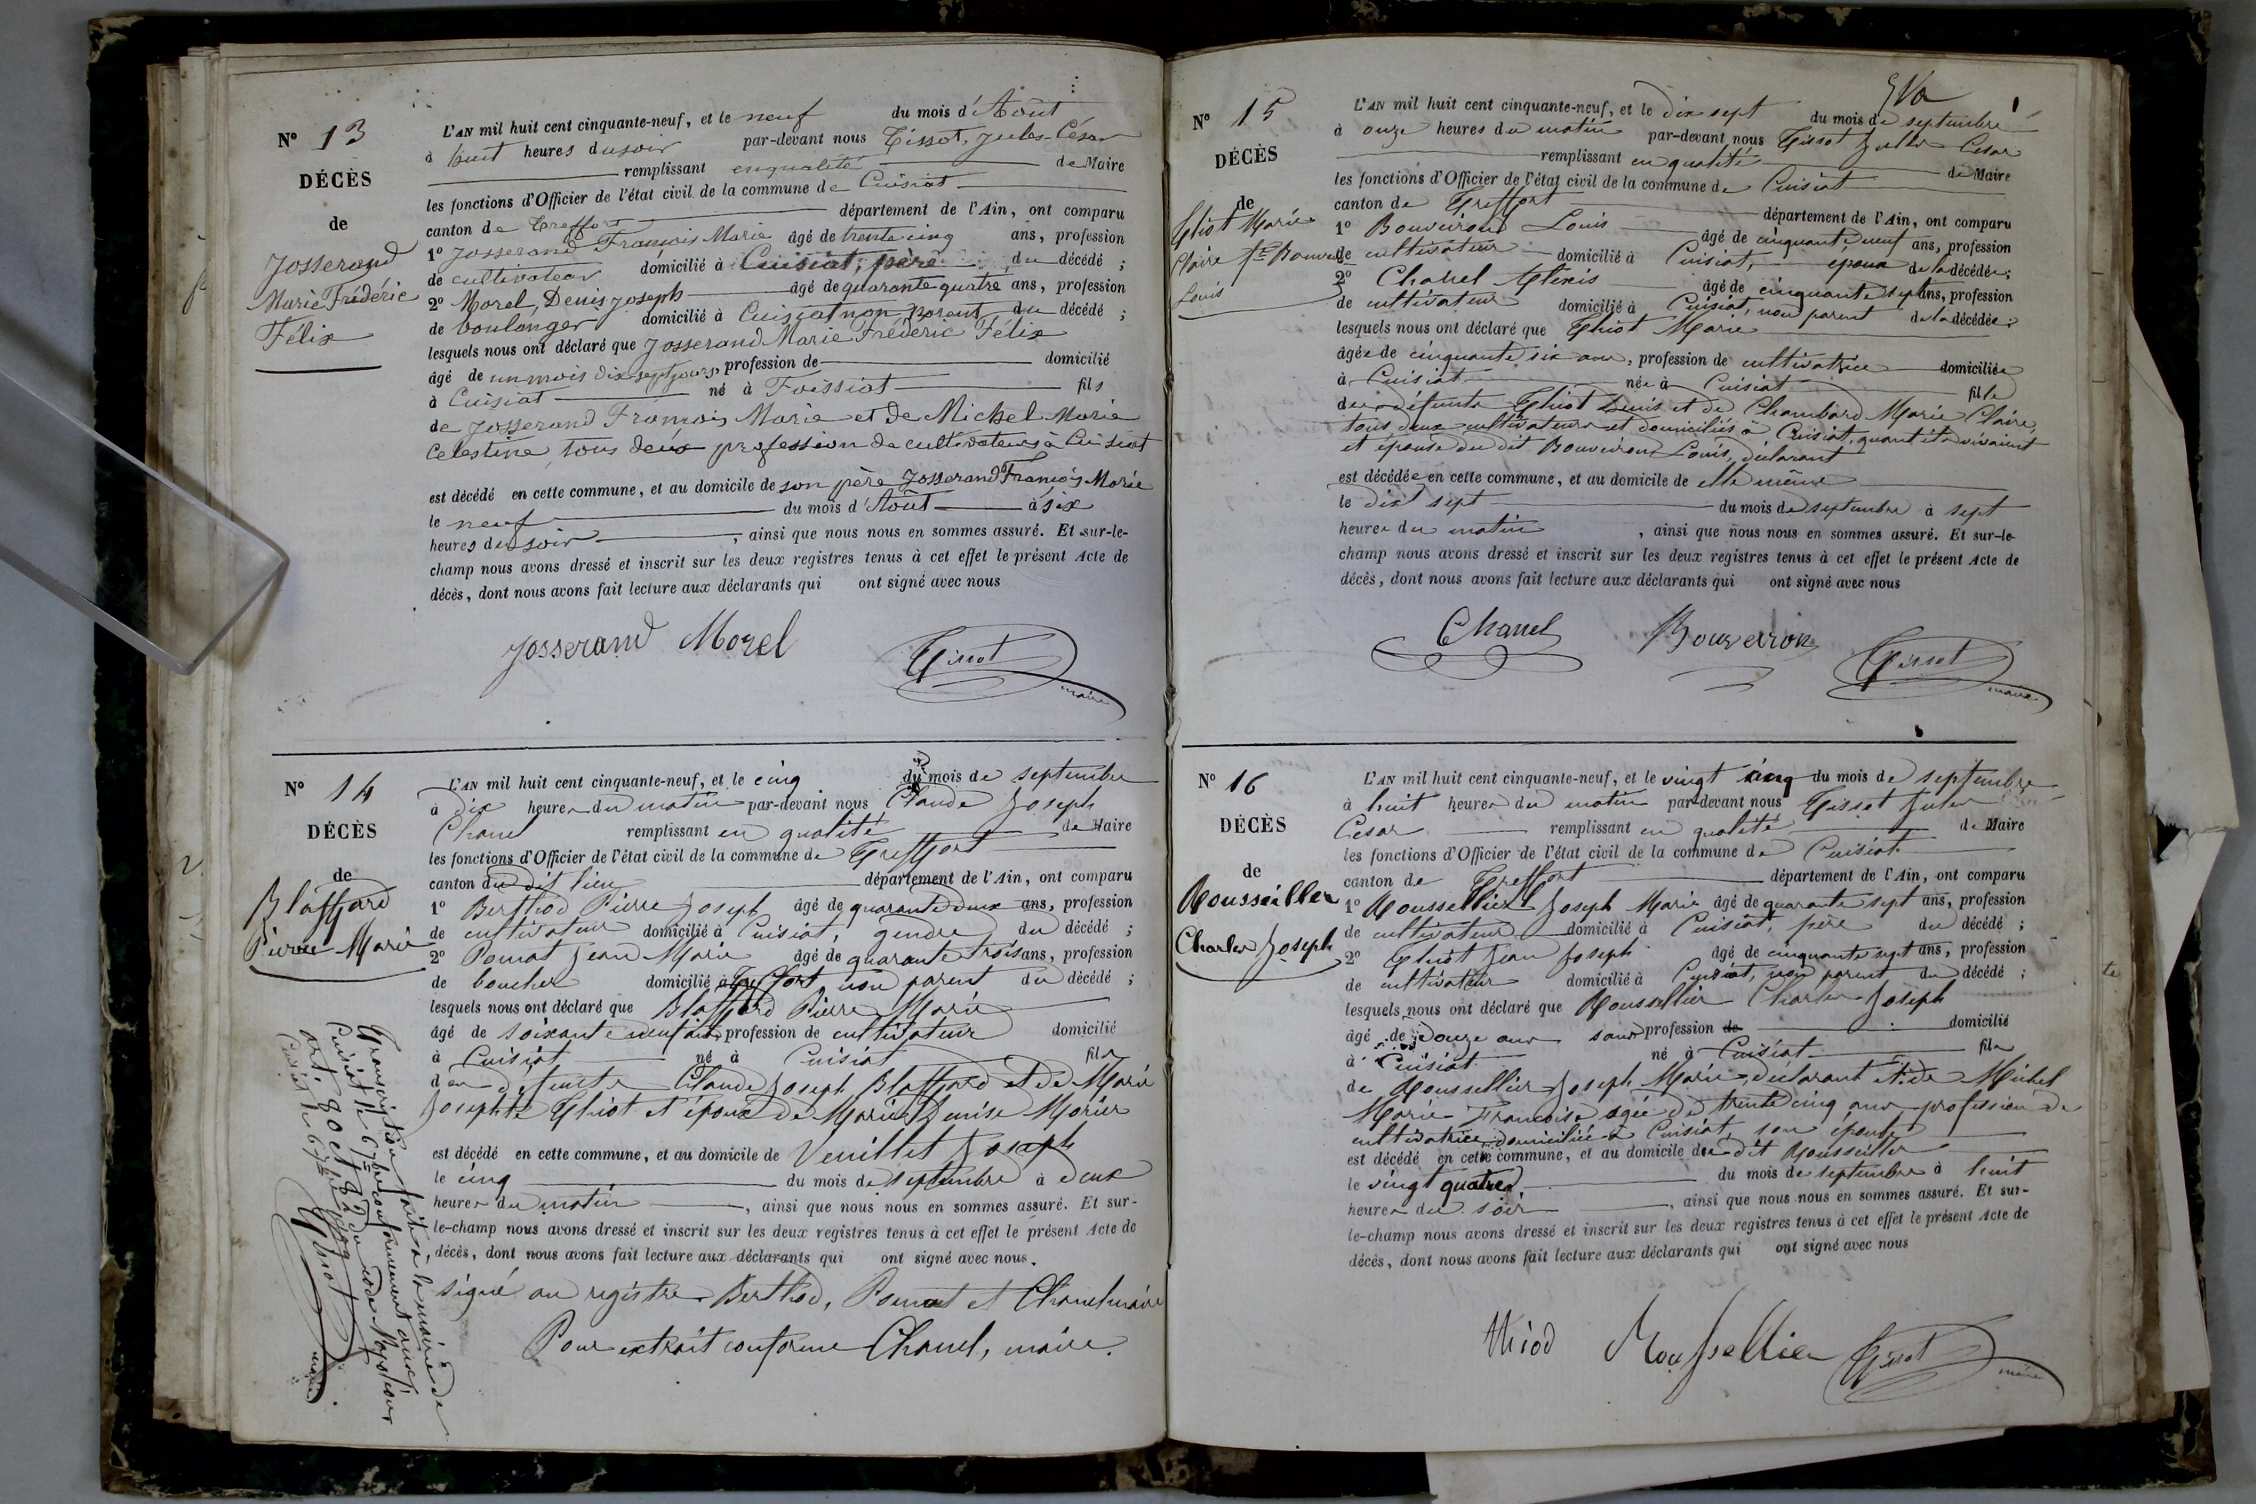 N° 13
DÉCÈS
de
Josserand
Marie Frédéric
Félix
L'AN mil huit cent cinquante-neuf, et le neuf du mois d'Août
à huit heures du soir par-devant nous Tissot, Jules César
remplissant en qualité de Maire
les fonctions d'Officier de l'état civil de la commune de Cuisiat
canton de Treffort département de l'Ain, ont comparu
1° Josserand François Marie âgé de trente cinq ans, profession
de cultivateur domicilié à Cuisiat, père du décédé ;
2° Morel, Denis Joseph âgé de quarante quatre ans, profession
de boulanger domicilié à Cuisiat non parent du décédé ;
lesquels nous ont déclaré que Josserand Marie Fréderic Félix
âgé de un mois dix sept jours, profession de domicilié
à Cuisiat né à Foissiat fils
de Josserand François Marie et de Michel Marie
Celestine, tous deux profession de cultivateurs à Cuisiat
est décédé en cette commune, et au domicile de son père Josserand François Marie
le neuf du mois d'Août à six
heures du soir, ainsi que nous nous en sommes assuré. Et sur-le-
champ nous avons dressé et inscrit sur les deux registres tenus à cet effet le présent Acte de
décès, dont nous avons fait lecture aux déclarants qui ont signé avec nous
Josserand Morel Tissot
maire
N° 14
DÉCÈS
de
Blaffard
Pierre Marie
L'AN mil huit cent cinquante-neuf, et le cinq du mois de septembre
à dix heures du matin par-devant nous Claude Joseph
Chanel remplissant en qualité de Maire
les fonctions d'Officier de l'état civil de la commune de Treffort
canton du dit lieu département de l'Ain, ont comparu
1° Berthod Pierre Joseph âgé de quarante deux ans, profession
de cultivateur domicilié à Cuisiat, gendre du décédé ;
2° Pomat Jean Marie âgé de quarante trois ans, profession
de boucher domicilié à Treffort non parent du décédé ;
lesquels nous ont déclaré que Blaffard Pierre Marie
âgé de soixante neuf ans, profession de cultivateur domicilié
à Cuisiat né à Cuisiat fils
des défunts Claude Joseph Blaffard et de Marie
Josephte Thiot et époux de Marie Denise Morier
est décédé en cette commune, et au domicile de Venillet Joseph
le cinq du mois de septembre à deux
heures du matin, ainsi que nous nous en sommes assuré. Et sur-
le-champ nous avons dressé et inscrit sur les deux registres tenus à cet effet le présent Acte de
décès, dont nous avons fait lecture aux déclarants qui ont signé avec nous.
signé au registre Berthod, Pomat et Chanel maire
Pour extrait conforme Chanel, maire.
Transcription faite à la mairie de
Cuisiat le 6 7bre conformément aux
art. 80 et 82 du code Napoléon
Cuisiat le 6 7bre 1859
Tissot
maire
N° 15
DÉCÈS
de
Thiot Marie
Claire fe Bouveiron
Louis
L'AN mil huit cent cinquante-neuf, et le dix sept du mois de septembre
à onze heures du matin par-devant nous Tissot Jules Cesar
remplissant en qualité de Maire
les fonctions d'Officier de l'état civil de la commune de Cuisiat
canton de Treffort département de l'Ain, ont comparu
1° Bouveiron Louis âgé de cinquante neuf ans, profession
de cultivateur domicilié à Cuisiat, époux de la décédée ;
2° Chanel Alexis âgé de cinquante sept ans, profession
de cultivateur domicilié à Cuisiat, non parent de la décédée ;
lesquels nous ont déclaré que Thiot Marie
âgée de cinquante six ans, profession de cultivatrice domiciliée
à Cuisiat née à Cuisiat fille
des défunts Thiot Denis et de Chambard Marie Claire,
tous deux cultivateurs et domiciliés à Cuisiat, quant ils vivaient
et épouse du dit Bouveiron Louis, déclarant
est décédée en cette commune, et au domicile de elle même
le dix sept du mois de septembre à sept
heures du matin, ainsi que nous nous en sommes assuré. Et sur-le-
champ nous avons dressé et inscrit sur les deux registres tenus à cet effet le présent Acte de
décès, dont nous avons fait lecture aux déclarants qui ont signé avec nous
Chanel Bouveiron Tissot
maire
N° 16
DÉCÈS
de
Rousseiller
Charles Joseph
L'AN mil huit cent cinquante-neuf, et le vingt cinq du mois de septembre
à huit heures du matin par-devant nous Tissot Jules
Cesar remplissant en qualité de Maire
les fonctions d'Officier de l'état civil de la commune de Cuisiat
canton de Treffort département de l'Ain, ont comparu
1° Roussellier Joseph Marie âgé de quarante sept ans, profession
de cultivateur domicilié à Cuisiat, père du décédé ;
2° Thiot Jean Joseph âgé de cinquante sept ans, profession
de cultivateur domicilié à Cuisiat, non parent du décédé ;
lesquels nous ont déclaré que Roussellier Charles Joseph
âgé de douze ans sans profession de domicilié
à Cuisiat né à Cuisiat fils
de Roussellier Joseph Marie, déclarant et de Michel
Marie Françoise agée de trente cinq ans profession de
cultivatrice domiciliée à Cuisiat, son épouse
est décédé en cette commune, et au domicile du dit Rousseiller
le vingt quatre du mois de septembre à huit
heures du soir, ainsi que nous nous en sommes assuré. Et sur-
le-champ nous avons dressé et inscrit sur les deux registres tenus à cet effet le présent Acte de
décès, dont nous avons fait lecture aux déclarants qui ont signé avec nous
thiod Roussellier Tissot
maire